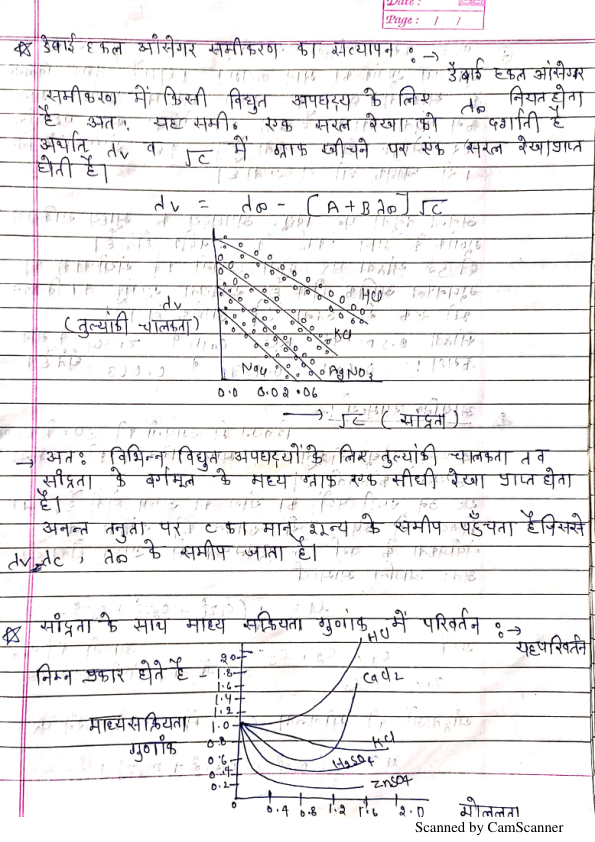 Date :
Page : / /
डेबाई हकल ऑसेगर समीकरण का सत्यापन :→
डेबाई हकल आंसेगर
समीकरण में किसी विद्युत अपघट्य के लिए λ∞ नियत होता
है अतः यह समी. एक सरल रेखा को दर्शाती है
अर्थात λv व √C में ग्राफ खींचने पर एक सरल रेखा प्राप्त
होती है।
λv = λ∞ - [A+Bλ∞]√C
HCl
λv
(तुल्यांकी चालकता)
KCl
NaCl AgNO3
0.0 0.02 .06
→ √C (सांद्रता)
→ अतः विभिन्न विद्युत अपघट्यों के लिए तुल्यांकी चालकता λv व
सांद्रता के वर्गमूल के मध्य ग्राफ एक सीधी रेखा प्राप्त होता
है।
अनन्त तनुता पर C का मान शून्य के समीप पहुँचता है जिससे
λv λc , λ∞ के समीप जाता है।
सांद्रता के साथ माध्य सक्रियता गुणांक में परिवर्तन :→
यह परिवर्तन
निम्न प्रकार होते है -
HCl
CaCl2
2.0
1.8
1.6
1.4
1.2
1.0
0.8
0.6
0.4
0.2
माध्य सक्रियता
गुणांक
KCl
H2SO4
ZnSO4
0 0.4 0.8 1.2 1.6 2.0 मोललता
Scanned by CamScanner